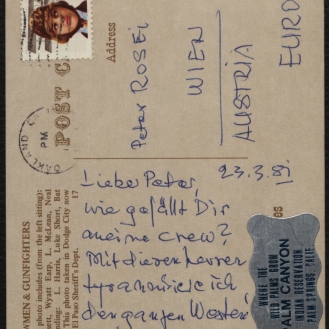 Address
POST C
OAKLAND, C
PM
Peter ROSEI
WIEN
AUSTRIA
EURO
23.3.81
Lieber Peter,
wie gefällt Dir
meine crew?
Mit diesen herren
tyrannisiere ich
den ganzen Westen!
WMEN & GUNFIGHTERS
photo includes (from the left sitting):
ett, Wyatt Earp, L. McLean, Neal
anding: L. Harris, Luke Short, But
This photo taken in Dodge City now
El Paso Sheriff's Dept. 17
WHERE THE
WILD PALMS GROW
ALM CANYON
INDIAN RESERVATION
PALM SPRINGS CALIF.